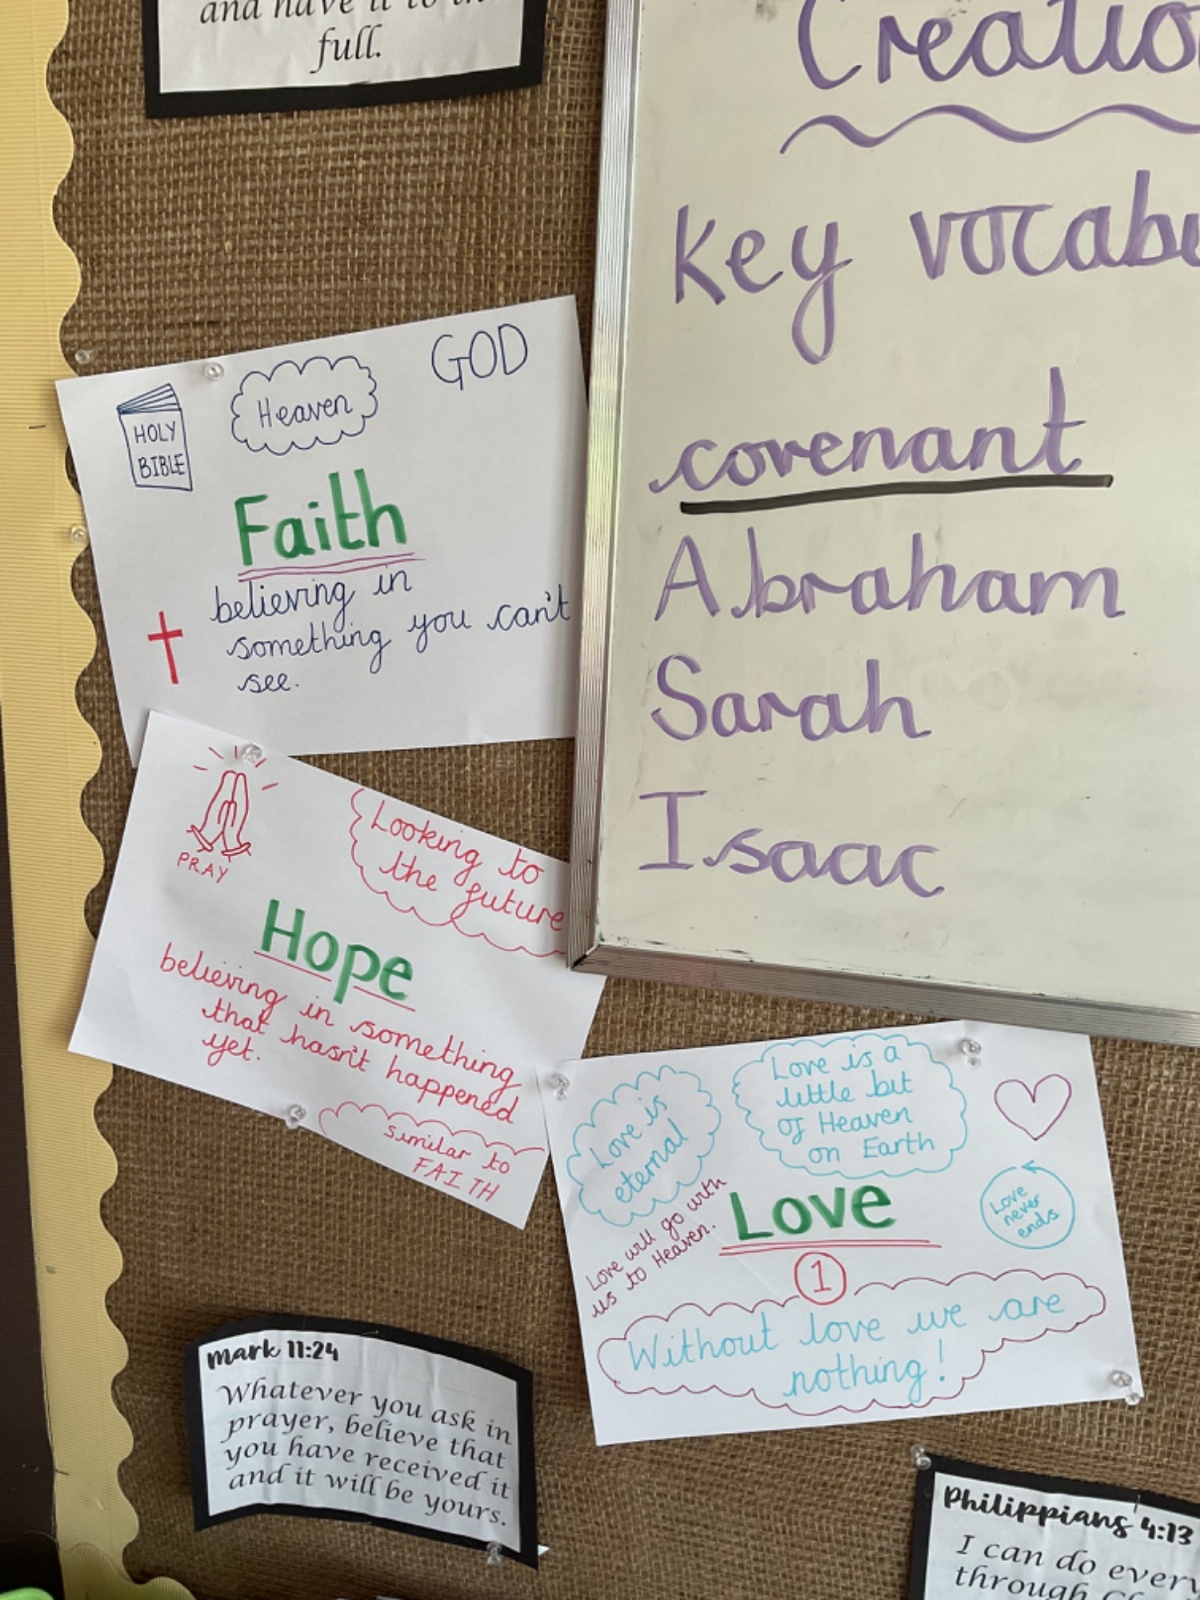 and have it to
full.
Creatio
Key vocabu
covenant
Abraham
Sarah
Isaac
HOLY
BIBLE
Heaven
GOD
Faith
believing in
something you can't
see.
PRAY
Looking to
the future
Hope
believing in something
that hasn't happened
yet.
similar to
FAITH
Love is
eternal
Love is a
little bit
of Heaven
on Earth
Love will go with
us to Heaven.
Love
Love
never
ends
1
Without love we are
nothing!
Mark 11:24
Whatever you ask in
prayer, believe that
you have received it
and it will be yours.
Philippians 4:13
I can do every
through